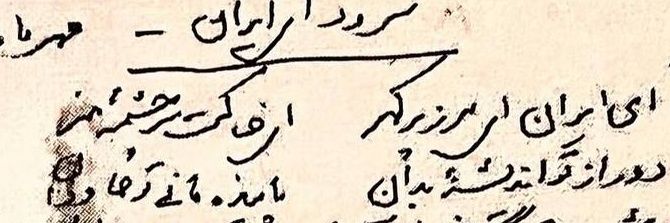 سرود ای ایران –
ای ایران ای مرز پر گهر ای خاکت سرچشمهٔ هنر
دور از تو اندیشهٔ بدان پاینده مانی تو جاودان